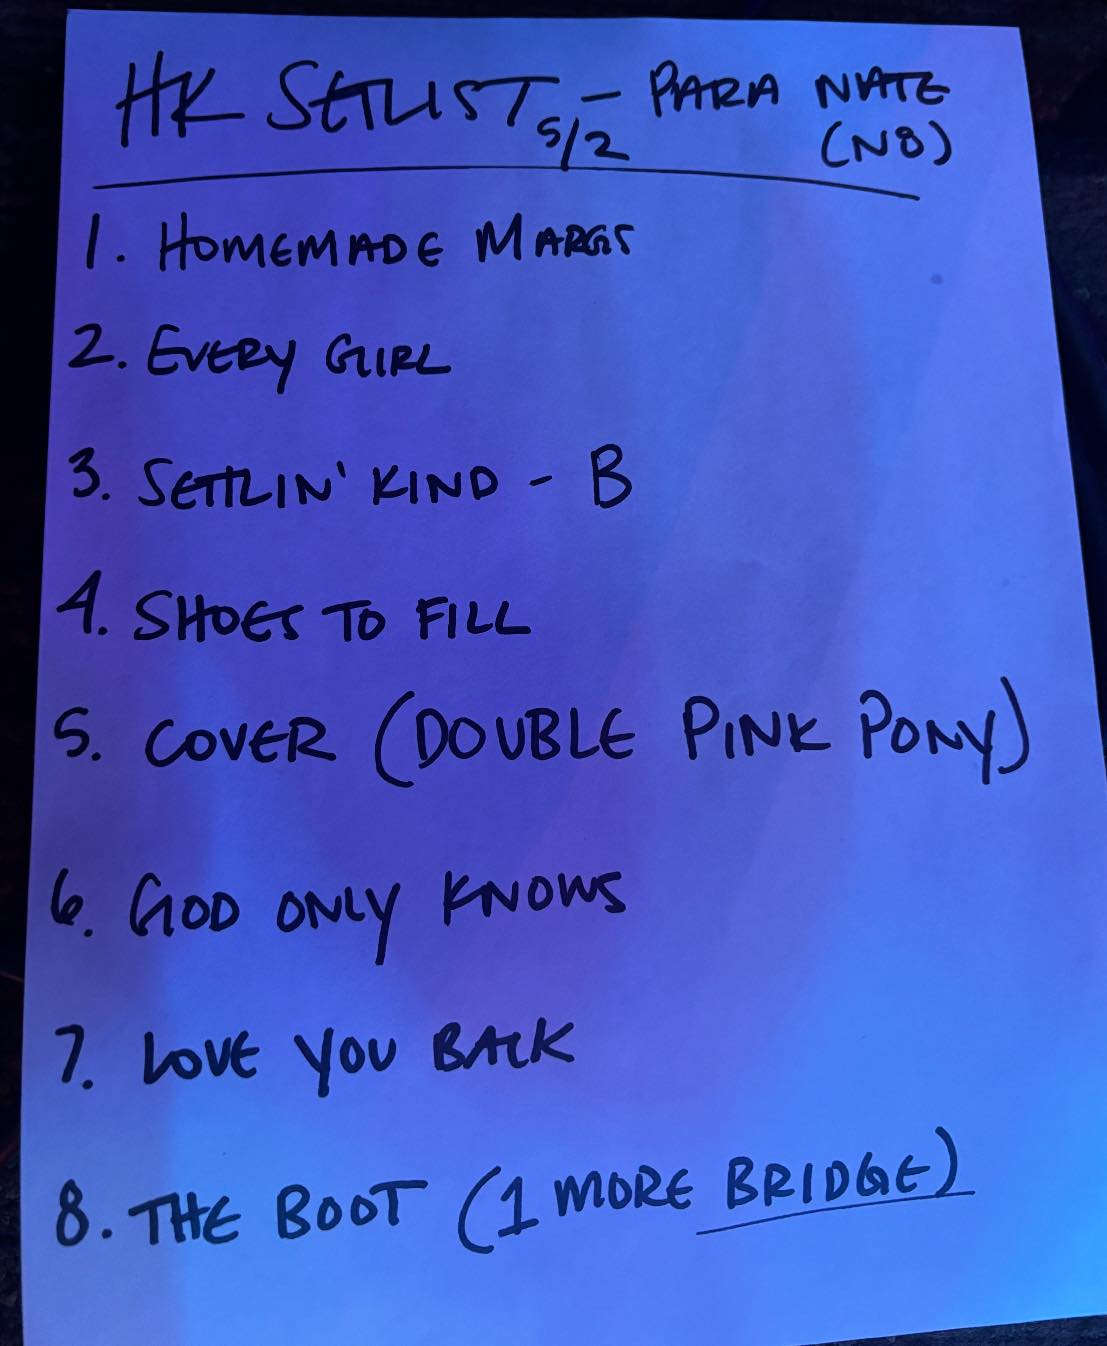 HK SETLIST 5/2 - PARA NATE
(N8)
1. HOMEMADE MARGS
2. EVERY GIRL
3. SETTLIN' KIND - B
4. SHOES TO FILL
5. COVER (DOUBLE PINK PONY)
6. GOD ONLY KNOWS
7. LOVE YOU BACK
8. THE BOOT (1 MORE BRIDGE)